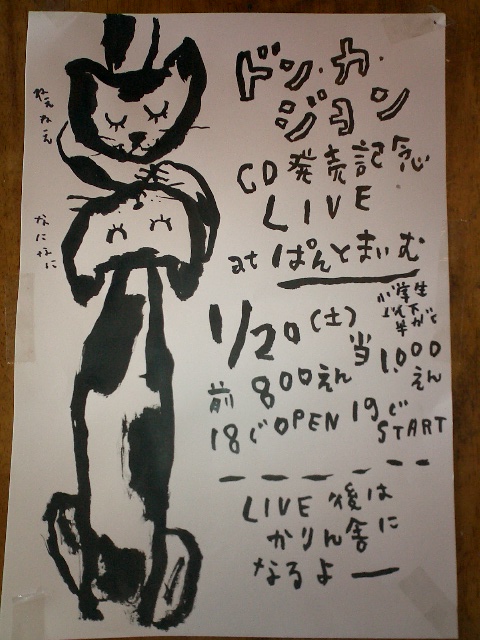 ねぇねぇ
なになに
ドン・カ
ジョン
CD発売記念
LIVE
at ぱんとまいむ
1/20(土)
小学生
以下が
半
当1,000
えん
前 800えん
18じOPEN 19じ
START
LIVE後は
かりん舎に
なるよー